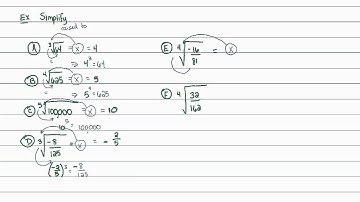 Ex Simplify
raised to
A ³√64 = x = 4
⇒ 4³ = 64
B ⁴√625 = x = 5
⇒ 5⁴ = 625
C ⁵√100000 = x = 10
10⁵ = 100000
D ³√(-8/125) = x = -2/5
(-2/5)³ = -8/125
E ⁴√(-16/81) = x
F ⁴√(32/162)